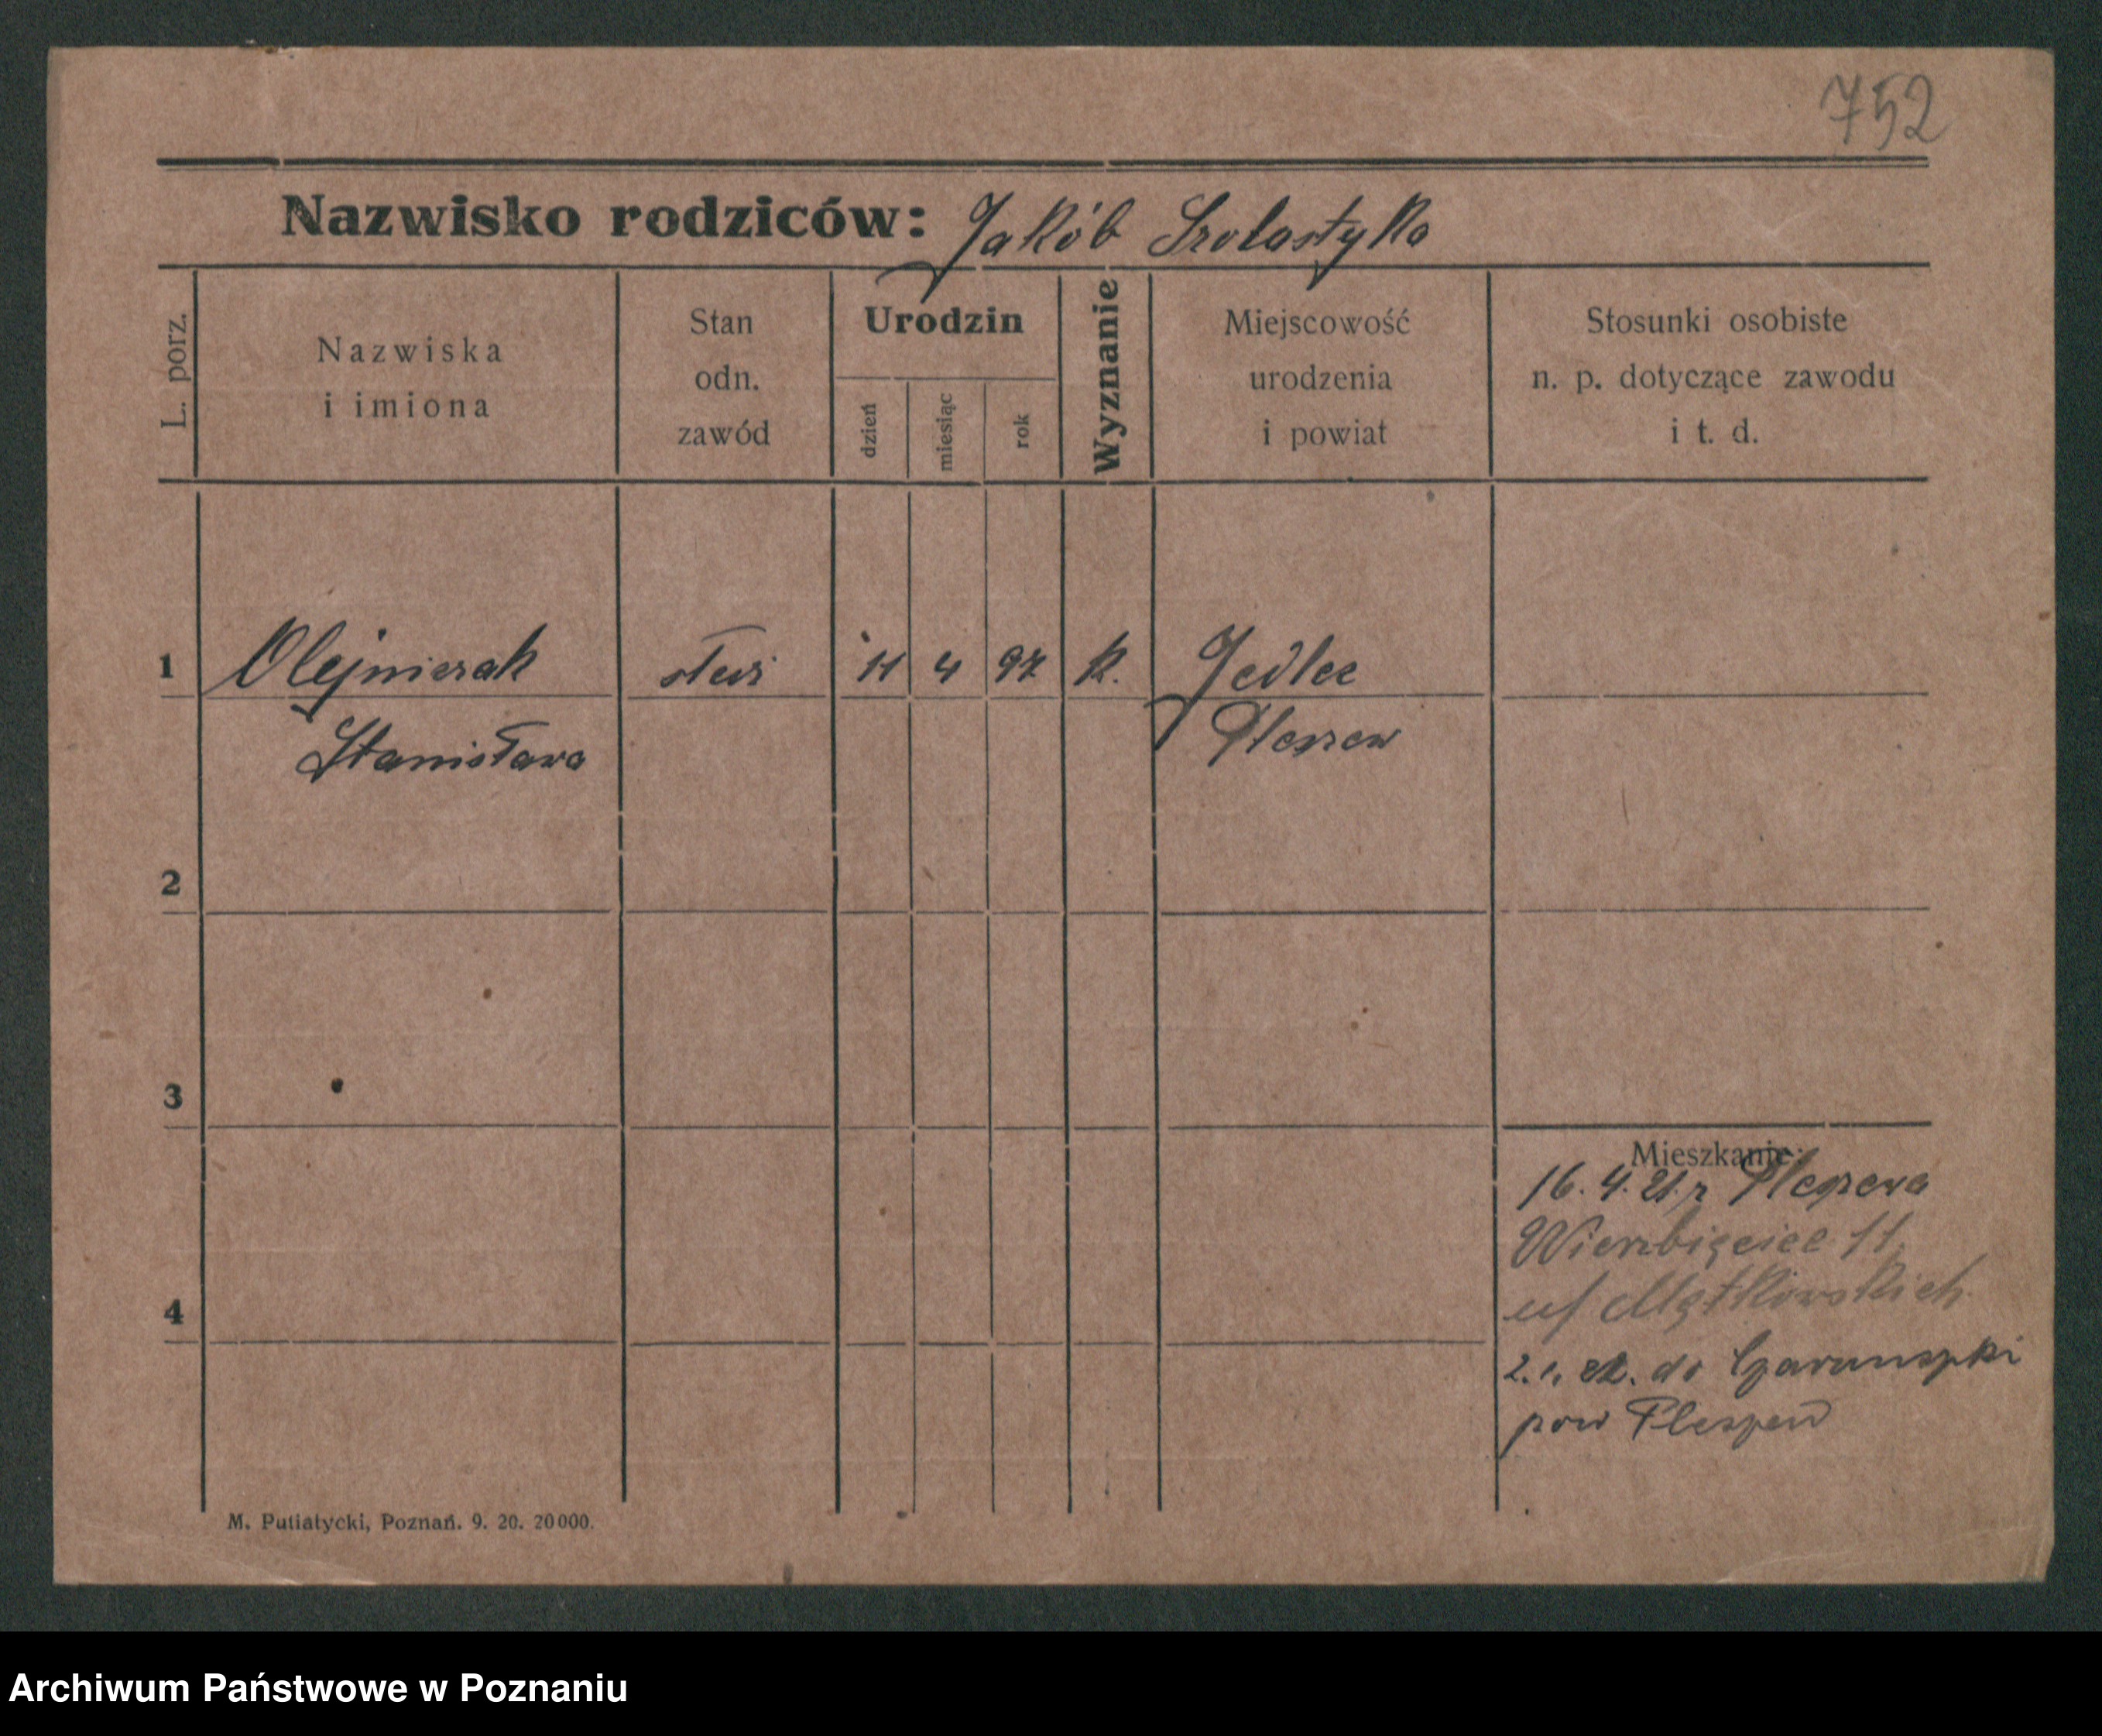 752
Nazwisko rodziców: Jakób Scolastyka
L. porz.
Nazwiska i imiona
Stan odn. zawód
Urodzin
dzień
miesiąc
rok
Wyznanie
Miejscowość urodzenia i powiat
Stosunki osobiste n. p. dotyczące zawodu i t. d.
1 Olejniczak 11 4 97 k. Jedlec
Stanisława Pleszew
2
3
4
Mieszkanie:
16. 4. 21. z Pleszewa
Wierzbięcice 11
u/ Mątkowskich
2. 1. 22. do
pow Pleszew
M. Putiatycki, Poznań. 9. 20. 20000.
Archiwum Państwowe w Poznaniu